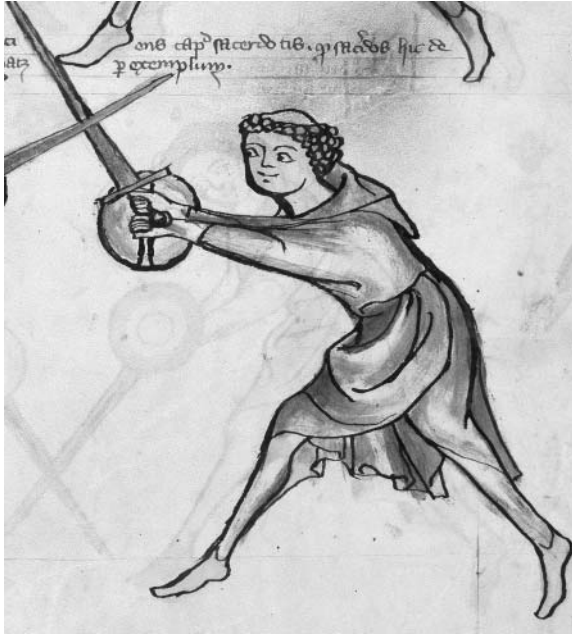 ens cap̄ sacerdotis. q̇ sac̄dos hic de
ꝑ exemplum.